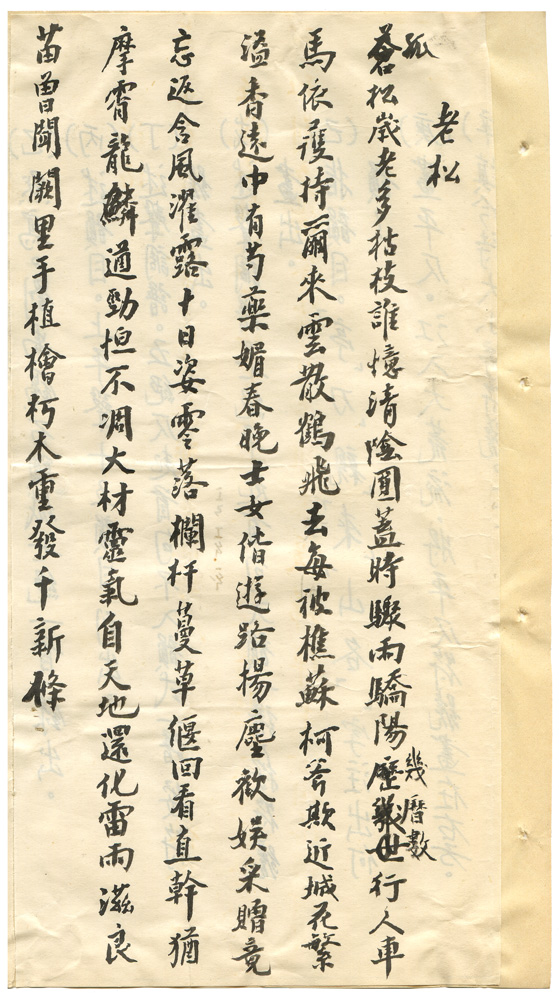 老松
孤
蒼松歲老多枯枝誰憶清陰圓蓋時驟雨驕陽歷幾世行人車
幾曆數
馬依護持爾來雲散鶴飛去每被樵蘇柯斧欺近城花繁
溢香遠中有芍藥媚春晚士女偕遊路揚塵歡娛采贈竟
忘返含風濯露十日姿零落欄杆蔓草偃回看直幹猶
摩霄龍鱗遒勁怛不凋大材靈氣自天地還化雷雨滋良
苗曾聞闕里手植檜朽木重發千新條